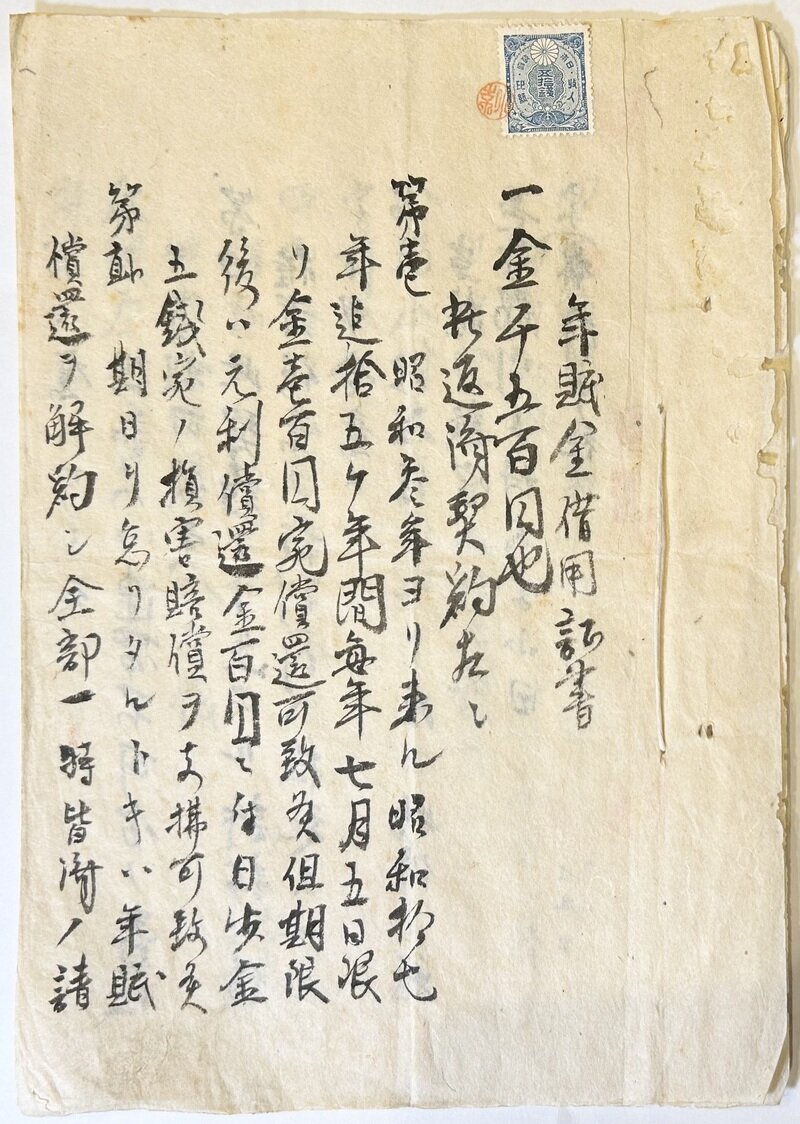 年賦金借用証書
一金千五百円也
此返済契約左ニ
第壱 昭和参年ヨリ来ル昭和拾七
年迄拾五ケ年間毎年七月五日限
リ金壱百円宛償還可致候但期限
後ハ元利償還金百円ニ付日歩金
五銭宛ノ損害賠償ヲ支払可致候
第弐 期日リ怠リタルトキハ年賦
償還ヲ解約シ全部一時皆済ノ請
日本政府
収入印紙
五拾銭